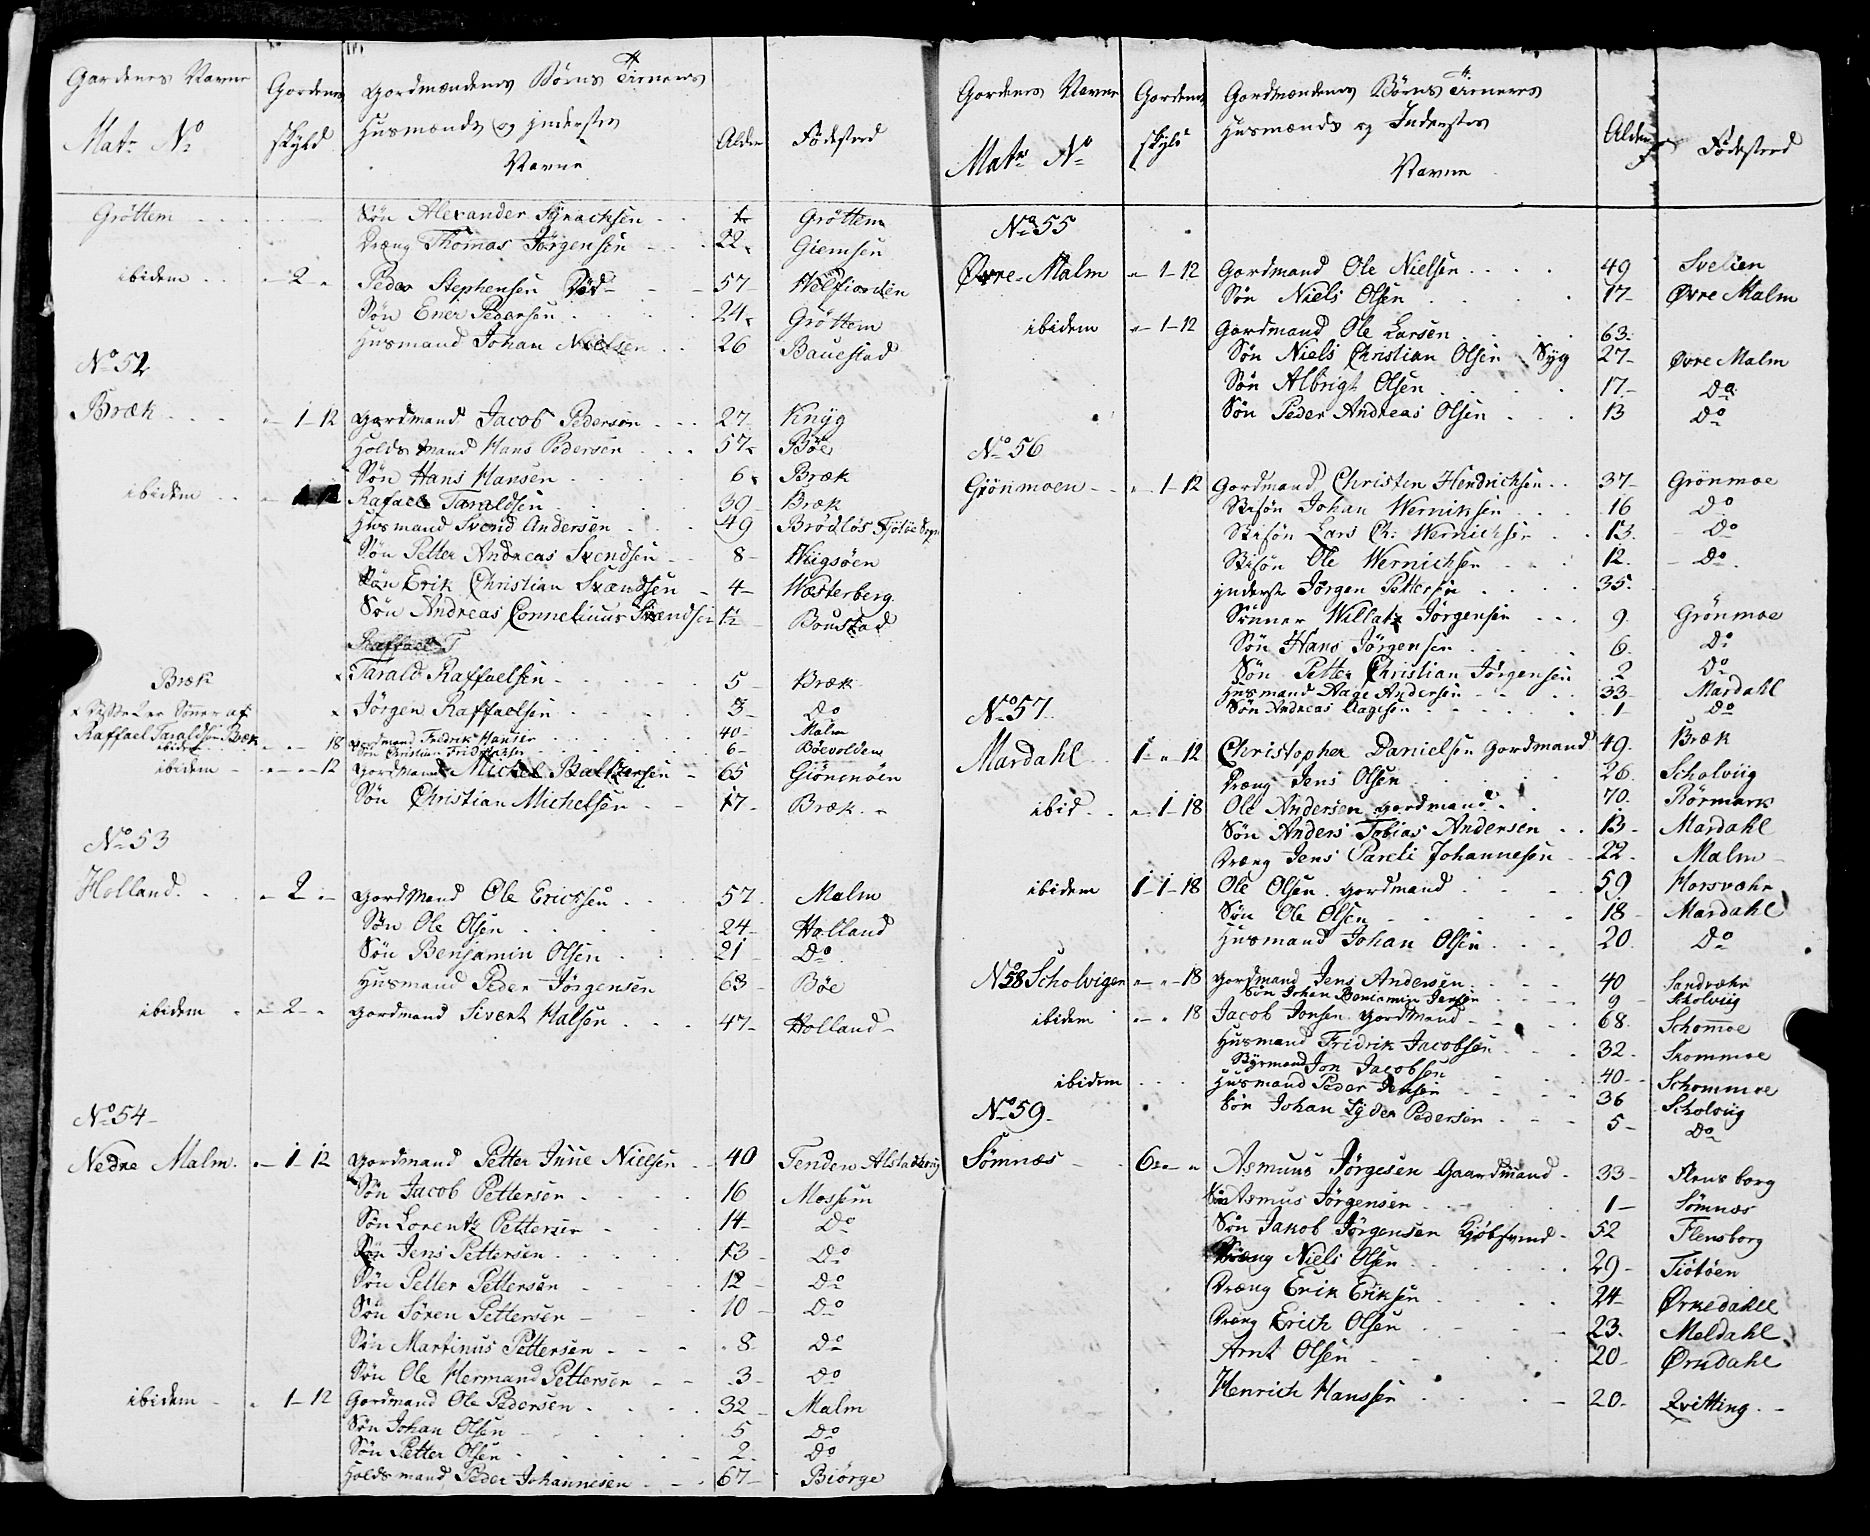 Gardenes Navne Mat: No | Gardenes skyld | Gordmændenes Børns Tieneres Husmænds og Inderster Navne | Alder | Fødested
Grøttem | Søn Alexander | Grøttem
Dræng Thomas Jørgensen | 22 | Giemsen
ibidem | 2 | Peder Stephensen | 57 | Welfiorden
Søn Ener Pedersen | 24 | Grøttem
Husmand Johan Nielsen | 26 | Bauestad
No 52
Bræk | 1-12 | Gordmand Jacob Pedersen | 27 | Knyg
Holdsmand Hans Pedersen | 57 | Bøe
Søn Hans Hansen | 6 | Bræk
ibidem | Rafael Taraldsen | 39 | Bræk
Husmand Svend Andersen | 49 | Brødløs
Søn Petter Andreas Svendsen | 8 | Wiigsøen
Søn Erik Christian Svændsen | 4 | Wæsterberg
Søn Andreas Connelius Svændsen | 1½ | Boustad
Raffael T
Bræk | Tarald Raffaelsen | 5 | Bræk
x disse 2 er Sønner af | x Jørgen Raffaelsen | 3 | Do
Raffael Taraldsen Bræk
ibidem | 18 | Gordmand Fridrik Hansen | 40 | Malm
Søn Christian Fridriksen | 6 | Bøevolden
ibidem | 12 | Gordmand Michel Baltzersen | 65 | Giønmoen
Søn Christian Michelsen | 17 | Bræk
No 53
Holland | 2 | Gordmand Ole Ericksen | 57 | Malm
Søn Ole Olsen | 24 | Holland
Søn Benjamin Olsen | 21 | Do
Husmand Peder Jørgensen | 63 | Bøe
ibidem | 2 | Gordmand Sivert Halsen | 47 | Holland
No 54
Nedre Malm | 1-12 | Gordmand Petter Juue Nielsen | 40 | Tenden Alstadhoug
Søn Jacob Pettersen | 16 | Mossem
Søn Lorentz Pettersen | 14 | Do
Søn Jens Pettersen | 13 | Do
Søn Petter Pettersen | 12 | Do
Søn Søren Pettersen | 10 | Do
Søn Martinus Pettersen | 8 | Do
Søn Ole Hermand Pettersen | 3 | Do
ibidem | 1-12 | Gordmand Ole Pedersen | 32 | Malm
Søn Johan Olsen | 5 | Do
Søn Petter Olsen | 2 | Do
Holdsmand Peder Johannesen | 67 | Biørge
Gordenes Navne Mat: No | Gordenes skyld | Gordmændenes Børns Tieneres Husmænds og Inderster Navne | Alder | Fødested
No 55
Øvre Malm | 1-12 | Gordmand Ole Nielsen | 49 | Svelien
Søn Niels Olsen | 17 | Øvre Malm
ibidem | 1-12 | Gordmand Ole Larsen | 63
Søn Niels Christian Olsen Syg | 27 | Øvre Malm
Søn Albrigt Olsen | 17 | Do
Søn Peder Andreas Olsen | 13 | Do
No 56
Grønmoen | 1-12 | Gordmand Christen Hendrichsen | 37 | Grønmoe
Stifsøn Johan Werniksen | 16 | Do
Stifsøn Lars Ch: Wernichsen | 13 | Do
Stifsøn Ole Wernichsen | 12 | Do
Inderst Jørgen Pettersen | 35
Sønner Willatz Jørgensen | 9 | Grønmoe
Søn Hans Jørgensen | 6 | Do
Søn Petter Christian Jørgensen | 2 | Do
Husmand Aage Andersen | 33 | Mardahl
Søn Andreas Aagesen | 1 | Do
No 57
Mardahl | 1-12 | Christopher Danielsen Gordmand | 49 | Bræk
Dræng Jens Olsen | 26 | Scholviig
ibid | 1-18 | Ole Andersen Gordmand | 70 | Rørmark
Søn Anders Tobias Andersen | 13 | Mardahl
Dræng Jens Pareli Johannesen | 22 | Malm
ibidem | 1-1-18 | Ole Olsen Gordmand | 59 | Horsvæhr
Søn Ole Olsen | 18 | Mardahl
Husmand Johan Olsen | 20 | Do
No 58 Scholvigen | 18 | Gordmand Jens Andersen | 40 | Sandvæhr
Søn Johan Beniamin Jensen | 9 | Scholviig
ibidem | 18 | Jacob Jonsen Gordmand | 68 | Schomoe
Husmand Fridrik Jacobsen | 32 | Skommoe
Styrmand Jon Jacobsen | 40 | Schommoe
ibidem | Husmand Peder Jensen | 36 | Scholviig
Søn Johan Lyder Pedersen | 5 | Do
No 59
Sømnæs | 6 | Asmuus Jørgesen Gaardmand | 33 | Flensborg
Søn Asmus Jørgensen | 1 | Sømnæs
Søn Jakob Jørgensen Kiøbsvend | 52 | Flensborg
Dræng Niels Olsen | 29 | Tiøtøen
Dræng Erik Eriksen | 24 | Ørkedahll
Dræng Erich Olsen | 23 | Meldahl
Arnt Olsen | 20 | Ørkdahl
Henrich Hanssen | 20 | Qvitting